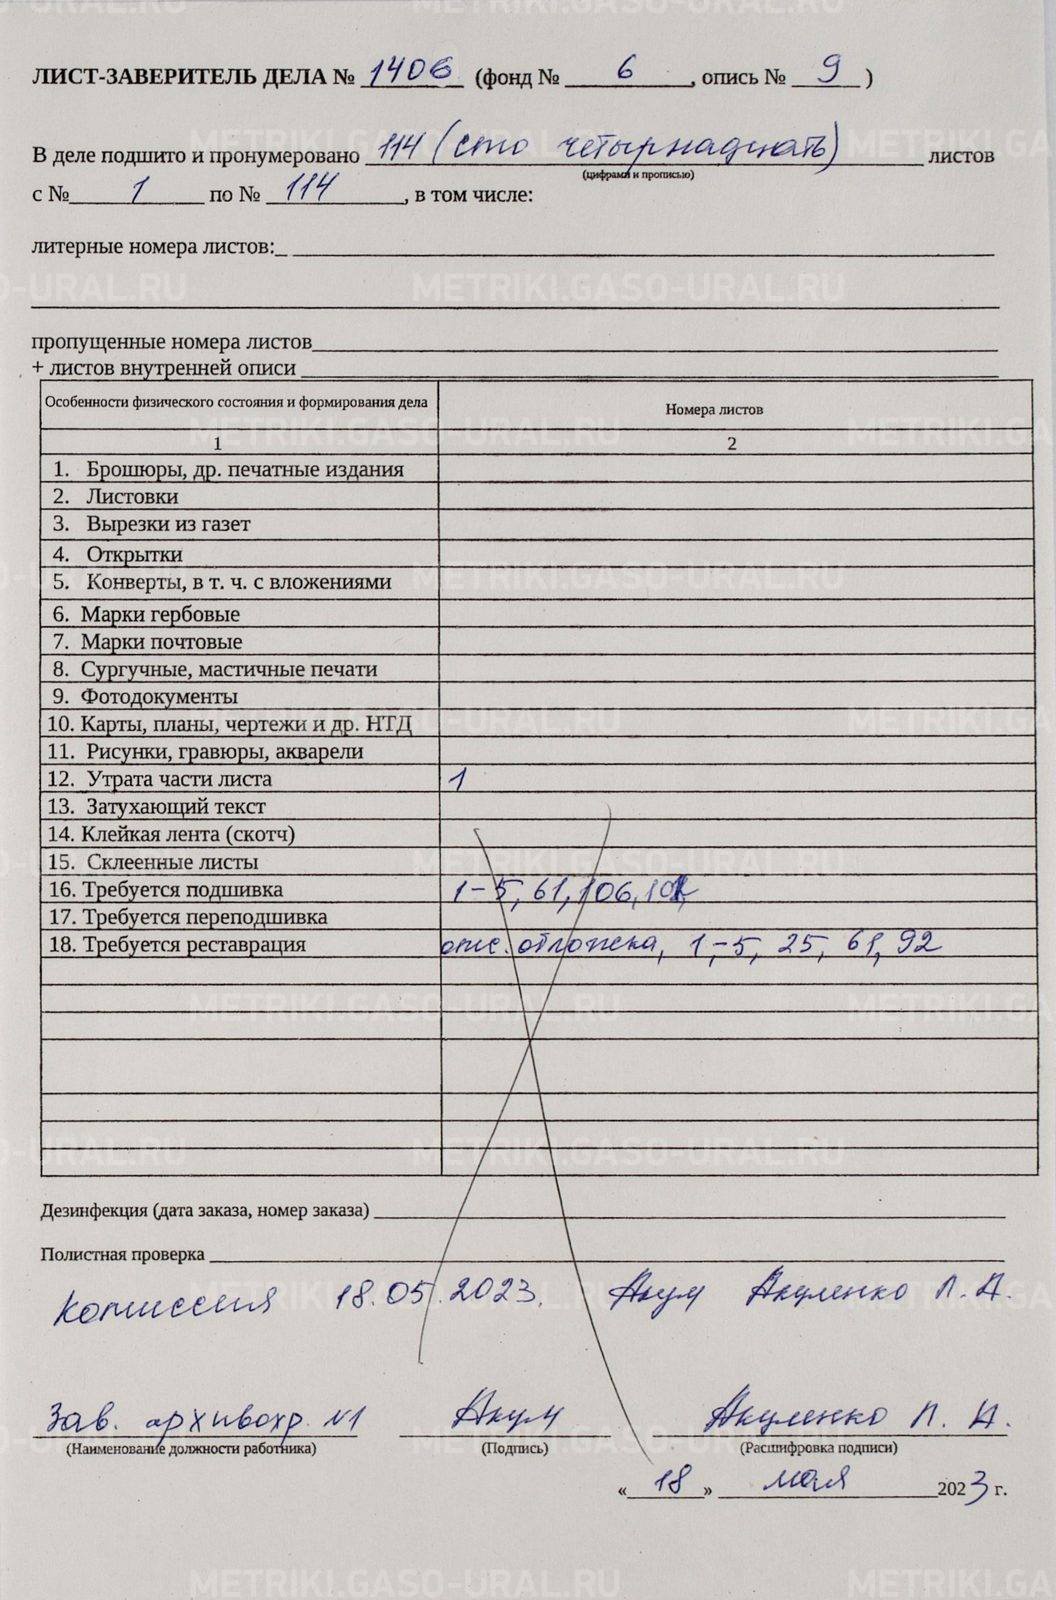 ЛИСТ-ЗАВЕРИТЕЛЬ ДЕЛА № 1406 (фонд № 6, опись № 9)
В деле подшито и пронумеровано 114 (сто четырнадцать) листов
(цифрами и прописью)
с № 1 по № 114, в том числе:
литерные номера листов:
пропущенные номера листов
+ листов внутренней описи
Особенности физического состояния и формирования дела Номера листов
1 2
1. Брошюры, др. печатные издания
2. Листовки
3. Вырезки из газет
4. Открытки
5. Конверты, в т. ч. с вложениями
6. Марки гербовые
7. Марки почтовые
8. Сургучные, мастичные печати
9. Фотодокументы
10. Карты, планы, чертежи и др. НТД
11. Рисунки, гравюры, акварели
12. Утрата части листа 1
13. Затухающий текст
14. Клейкая лента (скотч)
15. Склеенные листы
16. Требуется подшивка 1-5, 61, 106,
17. Требуется переподшивка
18. Требуется реставрация обложка, 1-5, 25, 61, 92
Дезинфекция (дата заказа, номер заказа)
Полистная проверка
Комиссия 18.05.2023. Акул Акуленко Л. А.
Зав. архивохр. №1 Акул Акуленко Л. А.
(Наименование должности работника) (Подпись) (Расшифровка подписи)
«18» мая 2023 г.
METRIKI.GASO-URAL.RU